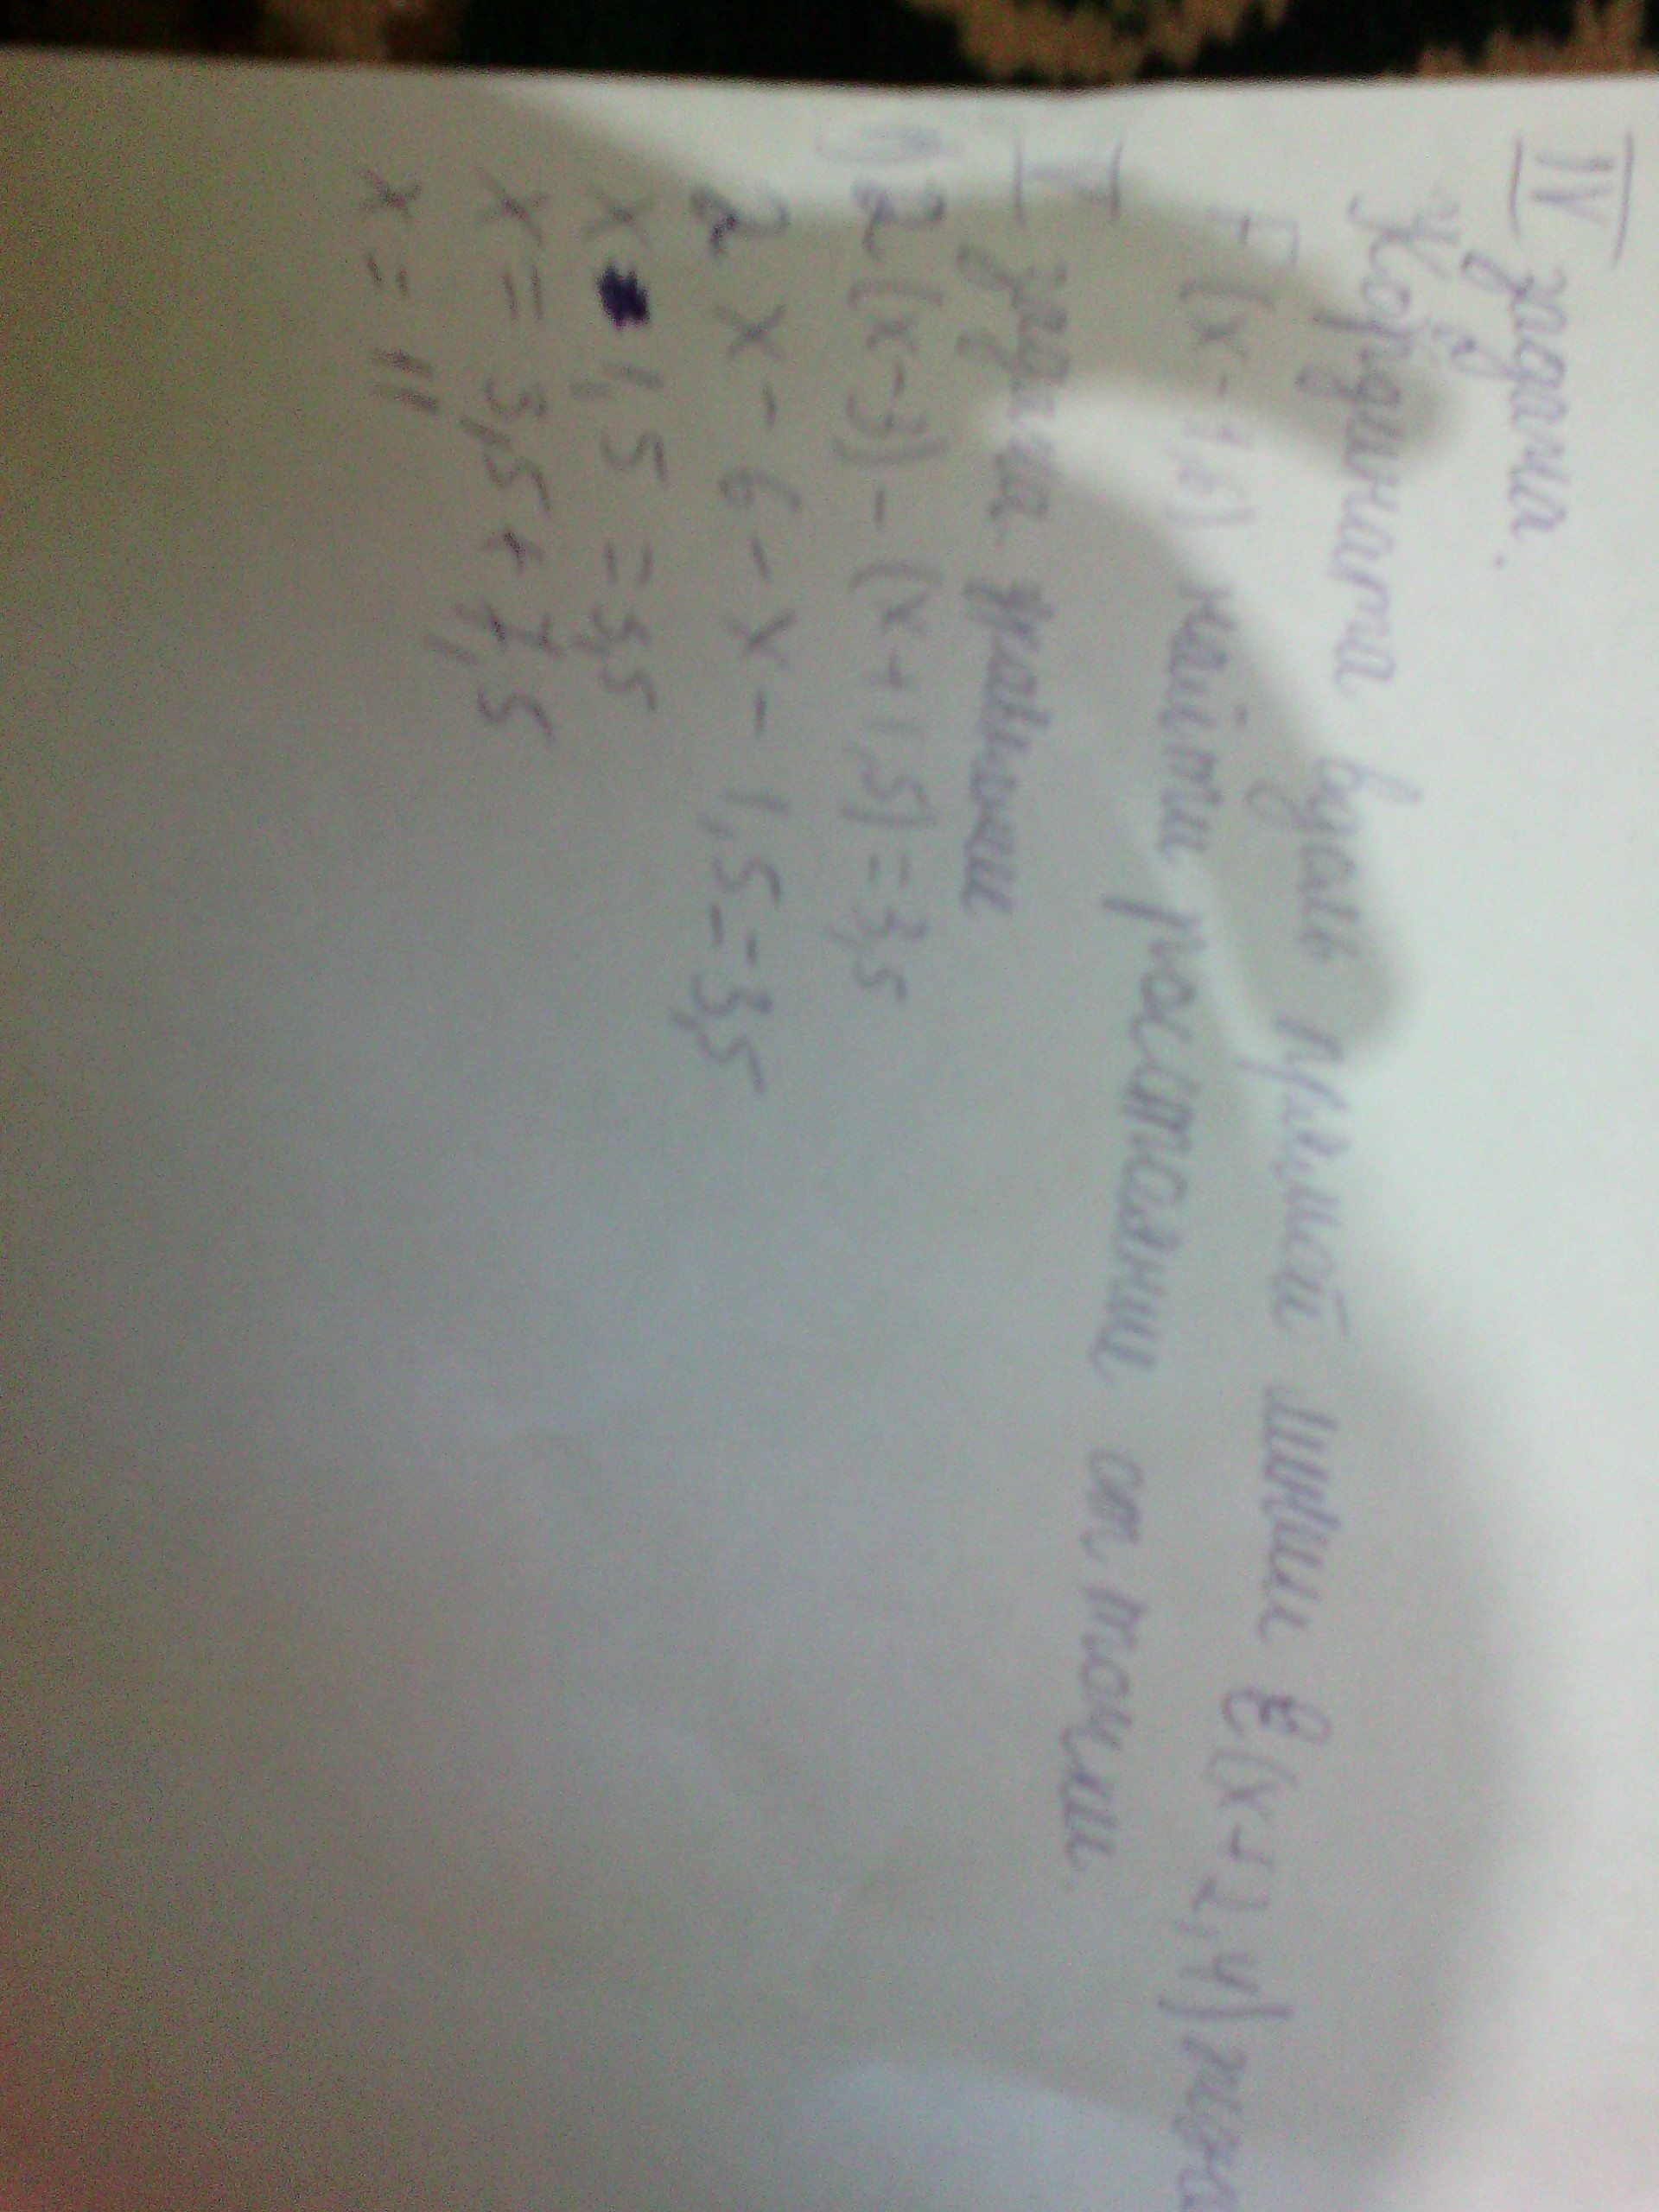 IV задача.
Координата вдоль прямой линии E(x+2,4) точка
F (x-1,6) найти растояние от точки
V задача уравнения
1) 2(x-3) - (x+1,5) = 3,5
2x - 6 - x - 1,5 = 3,5
x 1,5 = 3,5
x = 3,5 + 7,5
x = 11